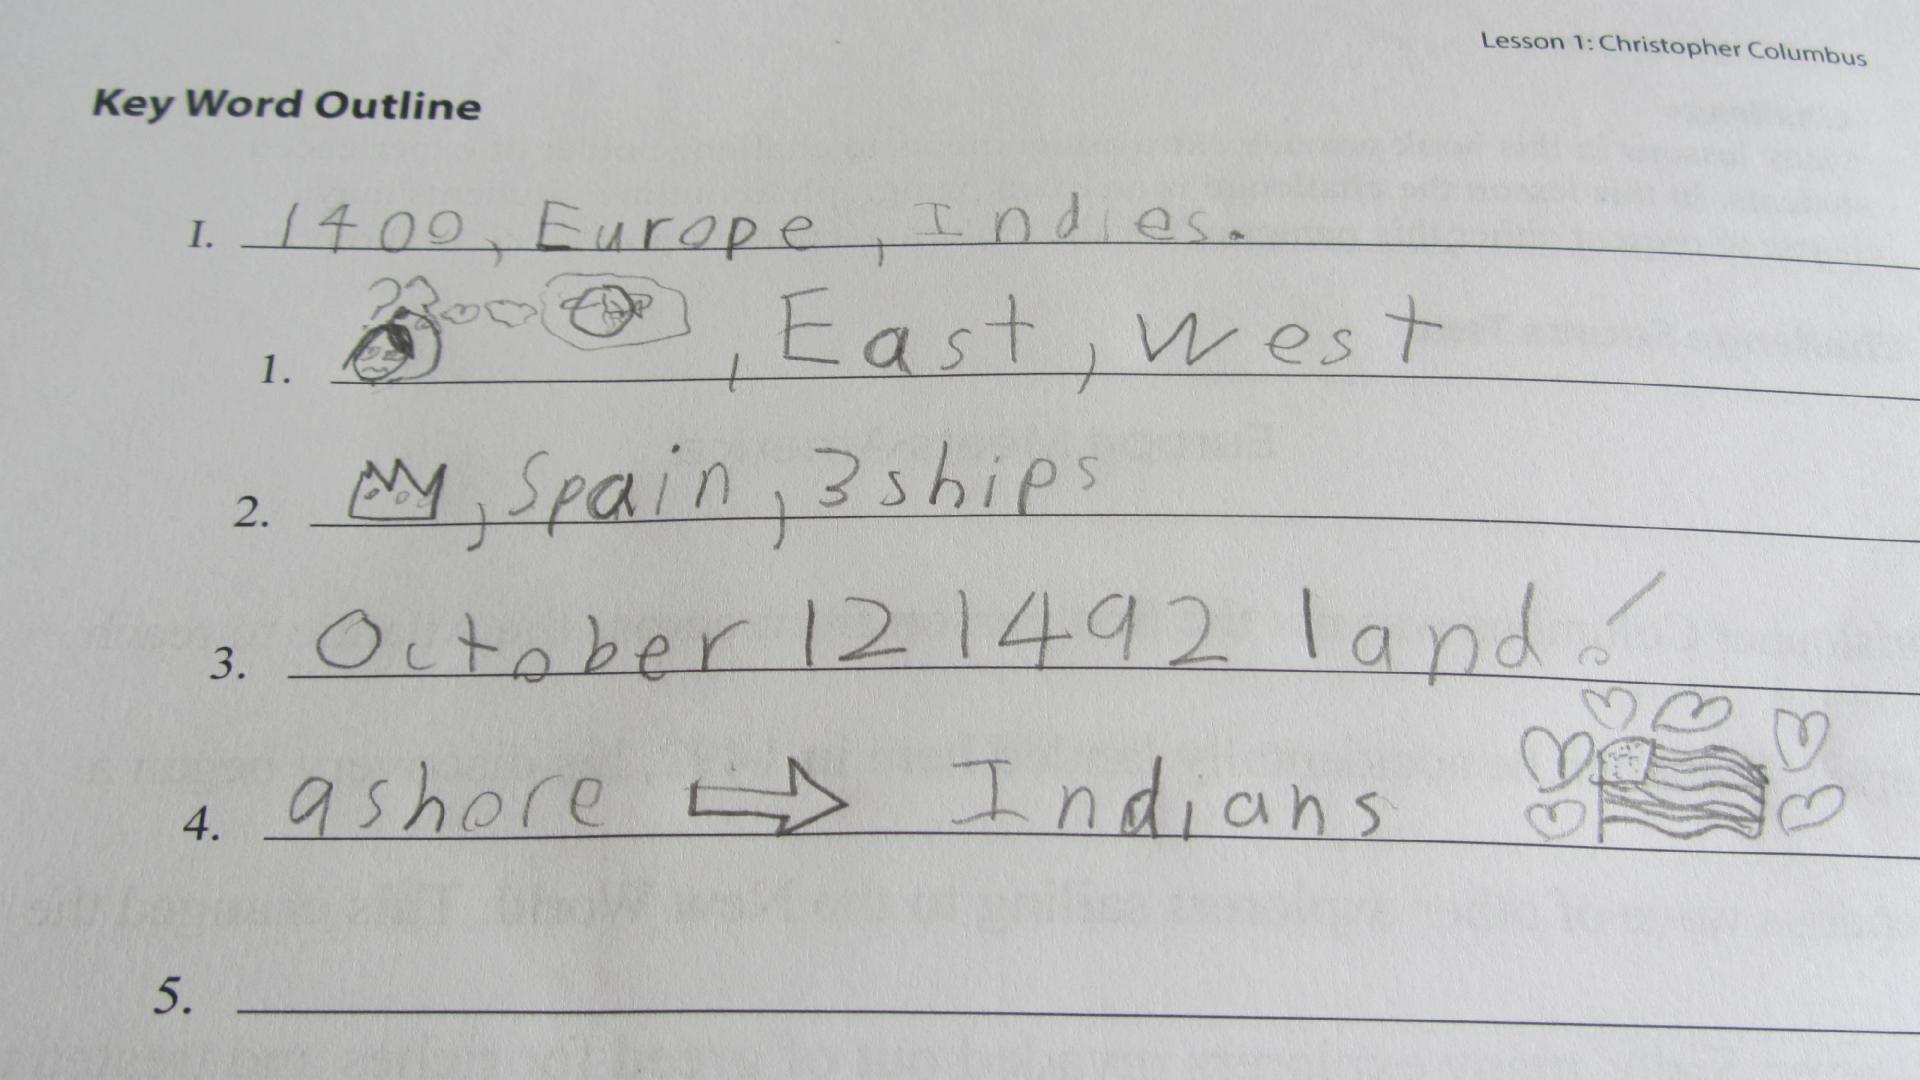 Lesson 1: Christopher Columbus
Key Word Outline
I. 1400, Europe, Indies.
1. , East, west
2. , Spain, 3 ships
3. October 12 1492 land!
4. ashore ⇨ Indians
5.